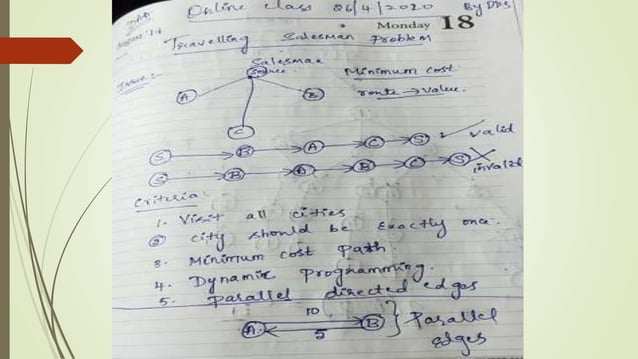 DAA
Online class 06/4/2020 By DDS
August '14
Monday 18
Travelling Salesman Problem
Issue:-
Salesman
Source
Minimum cost
route → value.
A B
C
S B A C S valid
S B A B C S invalid
Criteria:-
1. Visit all cities
2 city should be Exactly once.
3. Minimum cost path.
4. Dynamic Programming.
5. parallel directed edges
10
A B } Parallel
5
edges